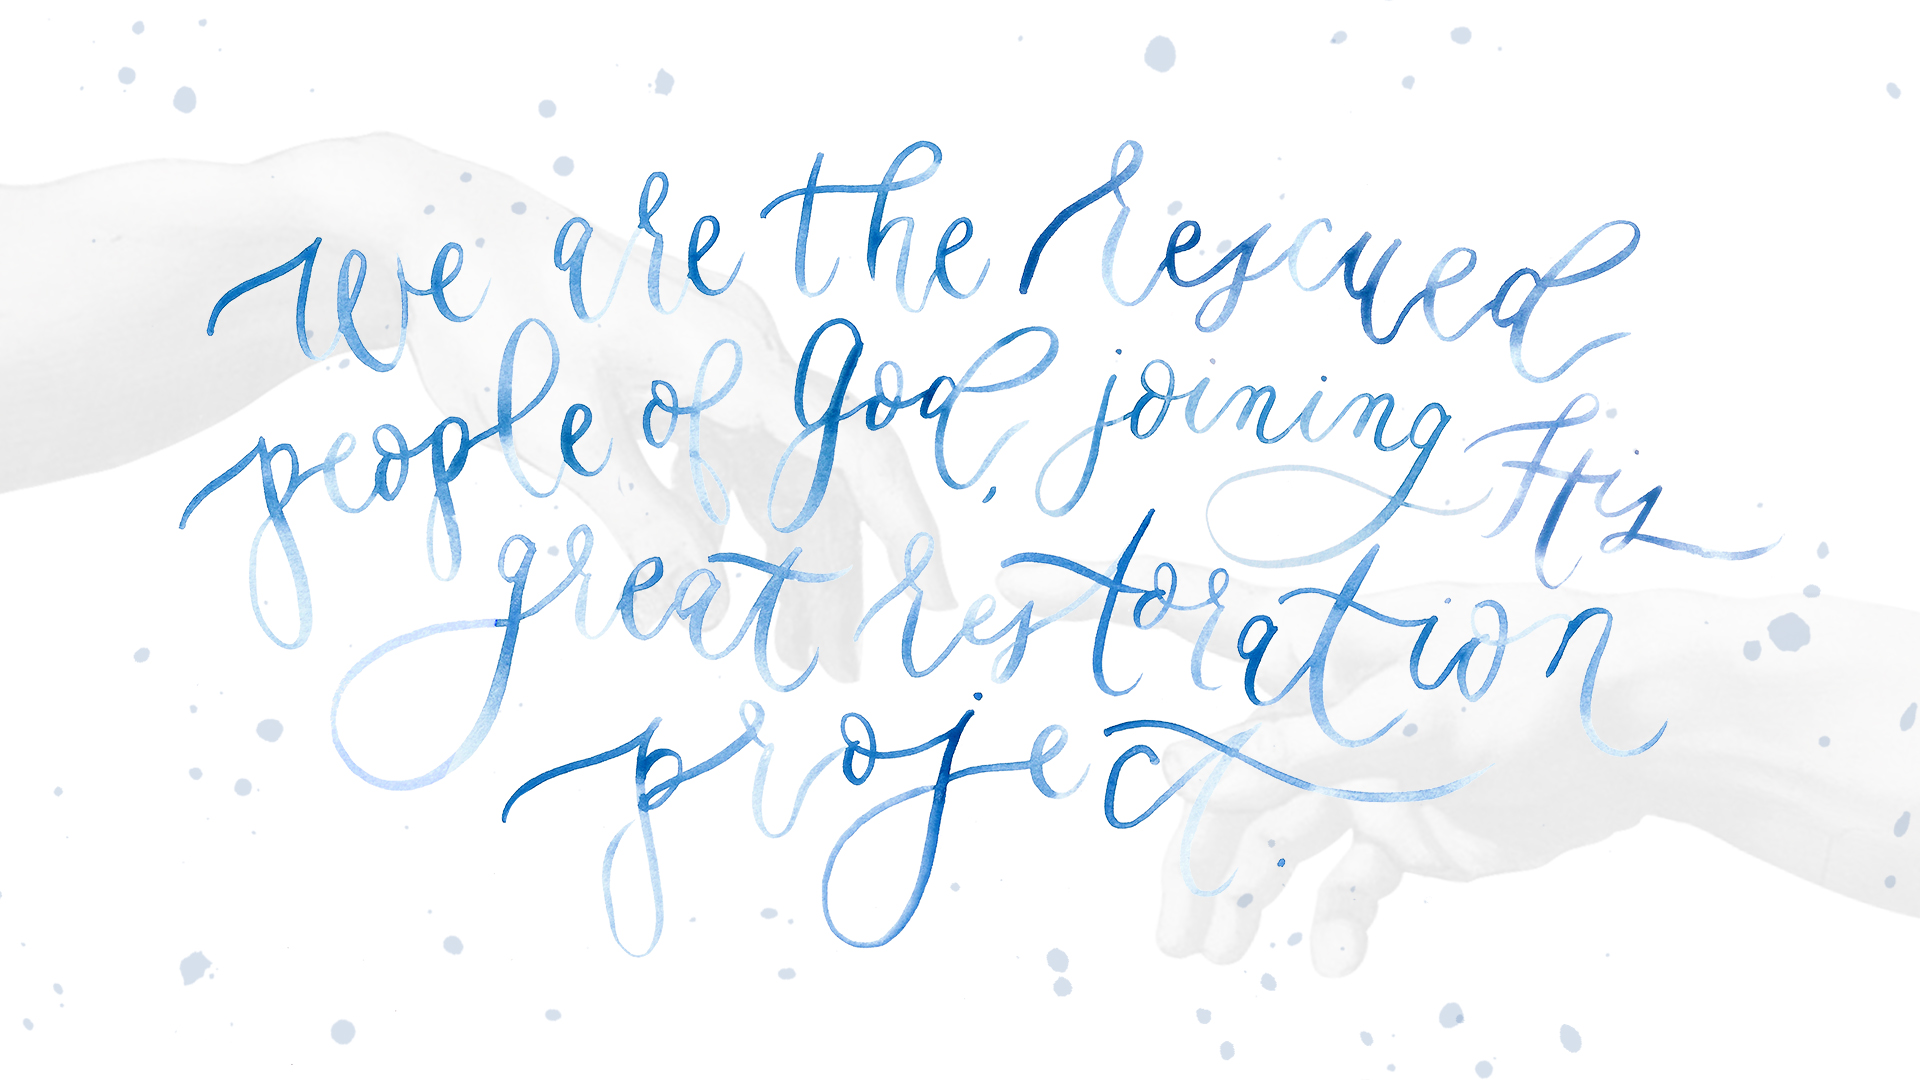 we are the rescued
people of God, joining His
great restoration
project.